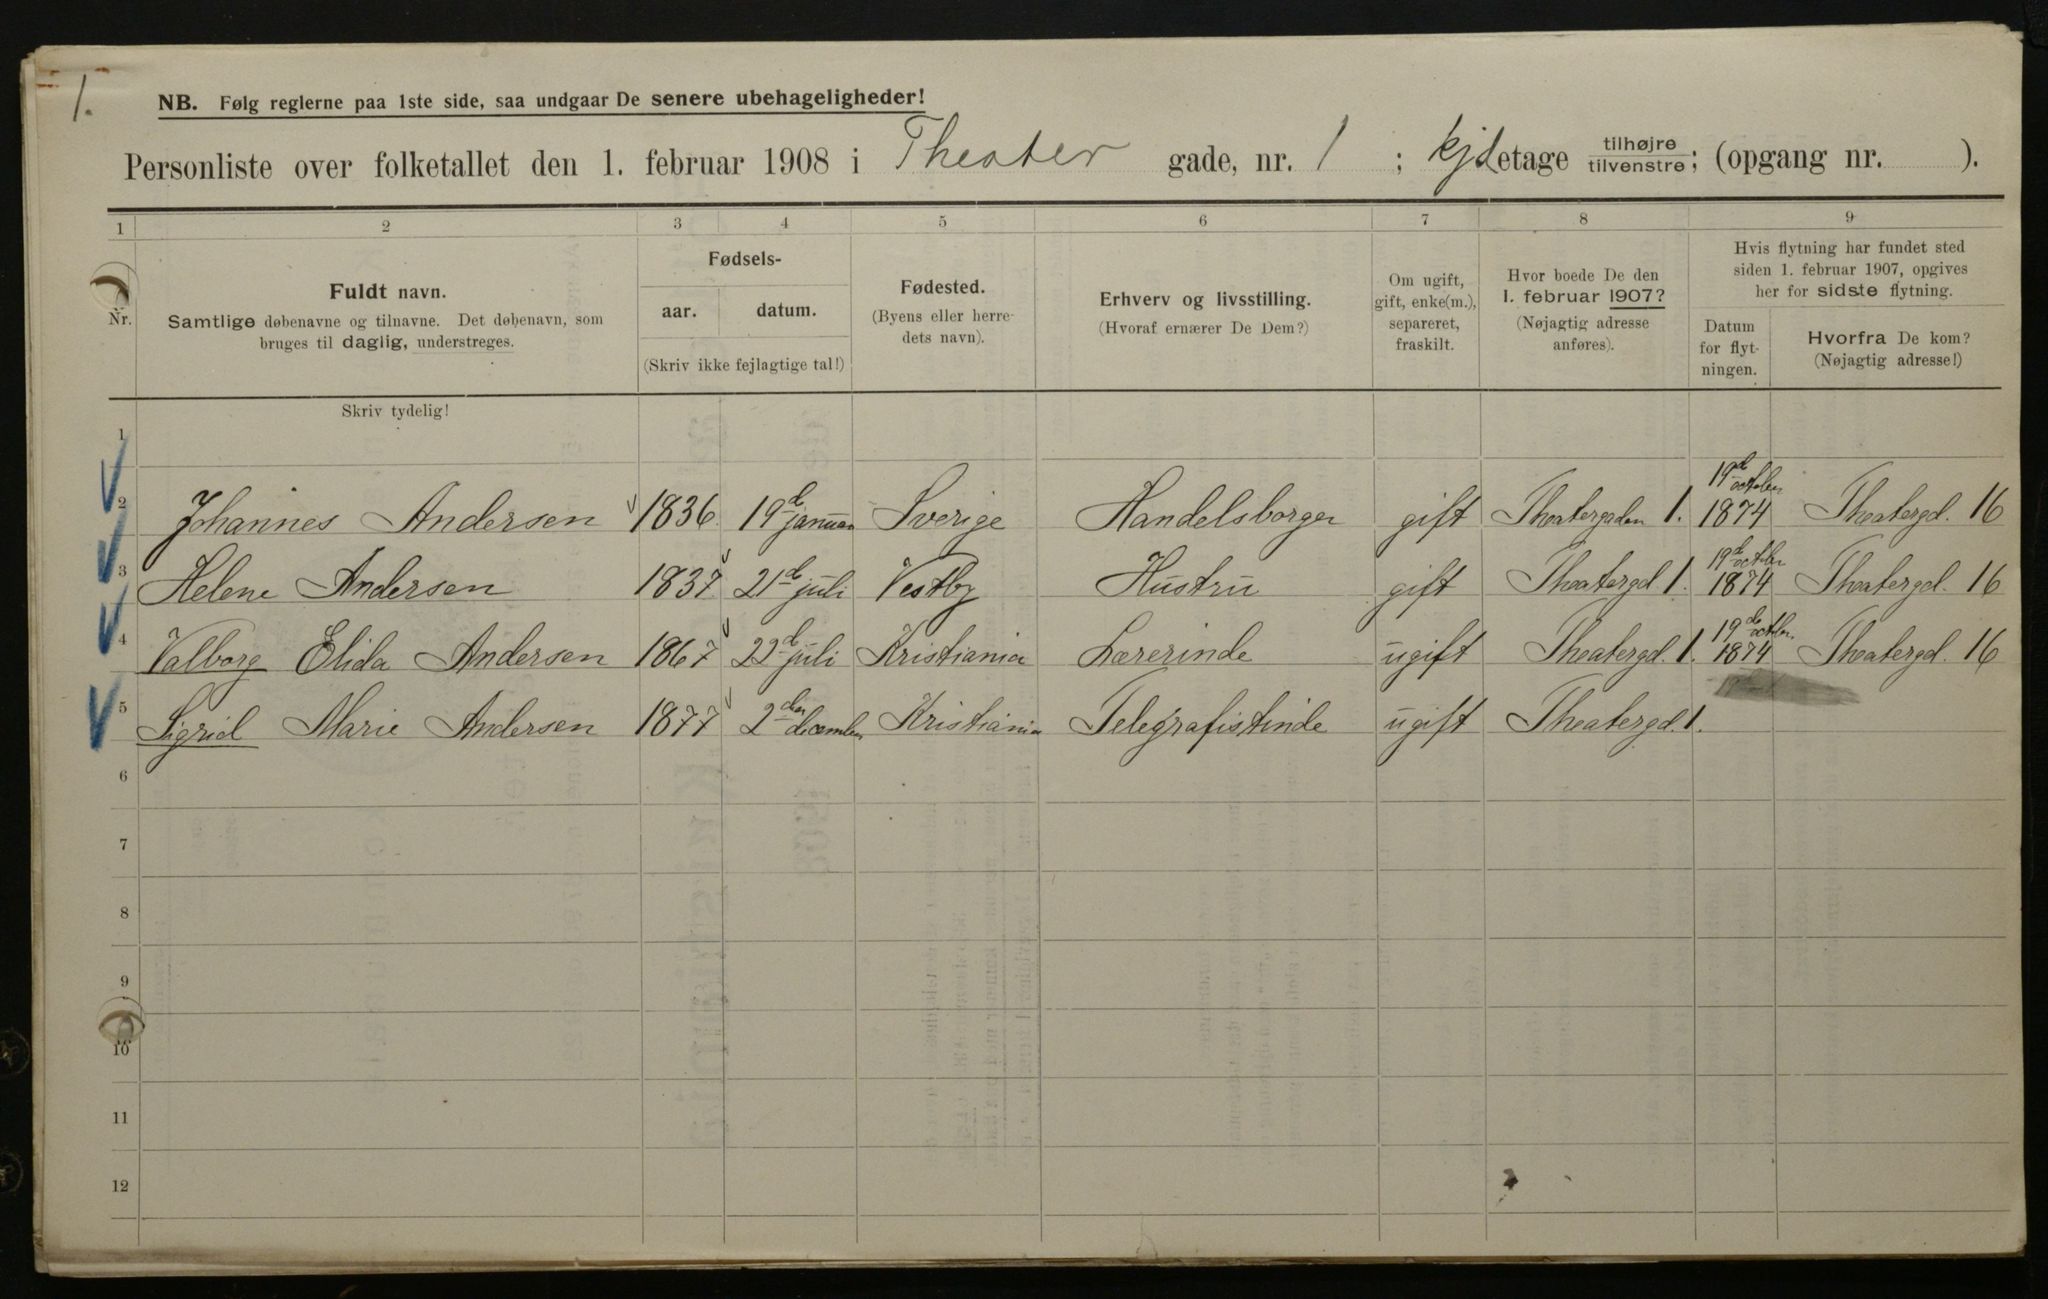 1.
NB. Følg reglerne paa 1ste side, saa undgaar De senere ubehageligheder!
Personliste over folketallet den 1. februar 1908 i Theater gade, nr. 1 ; kjd etage tilhøjre/tilvenstre; (opgang nr. ).
1 2 3 4 5 6 7 8 9
Nr.
Fuldt navn.
Samtlige døbenavne og tilnavne. Det døbenavn, som
bruges til daglig, understreges.
Fødsels-
aar. datum.
(Skriv ikke fejlagtige tal!)
Fødested.
(Byens eller herre-
dets navn).
Erhverv og livsstilling.
(Hvoraf ernærer De Dem?)
Om ugift,
gift, enke(m.),
separeret,
fraskilt.
Hvor boede De den
1. februar 1907?
(Nøjagtig adresse
anføres).
Hvis flytning har fundet sted
siden 1. februar 1907, opgives
her for sidste flytning.
Datum
for flyt-
ningen.
Hvorfra De kom?
(Nøjagtig adresse!)
Skriv tydelig!
1
2 Johannes Andersen 1836 19de januar Sverige Handelsborger gift Theatergaden 1. 19de octber 1874 Theatergd. 16
3 Helene Andersen 1837 21de juli Vestby Hustru gift Theatergd 1. 19de octber 1874 Theatergd. 16
4 Valborg Elida Andersen 1867 22de juli Kristiania Lærerinde ugift Theatergd. 1. 19de octber. 1874 Theatergd. 16
5 Sigrid Marie Andersen 1877 2den december Kristiania Telegrafistinde ugift Theatergd. 1.
6
7
8
9
10
11
12